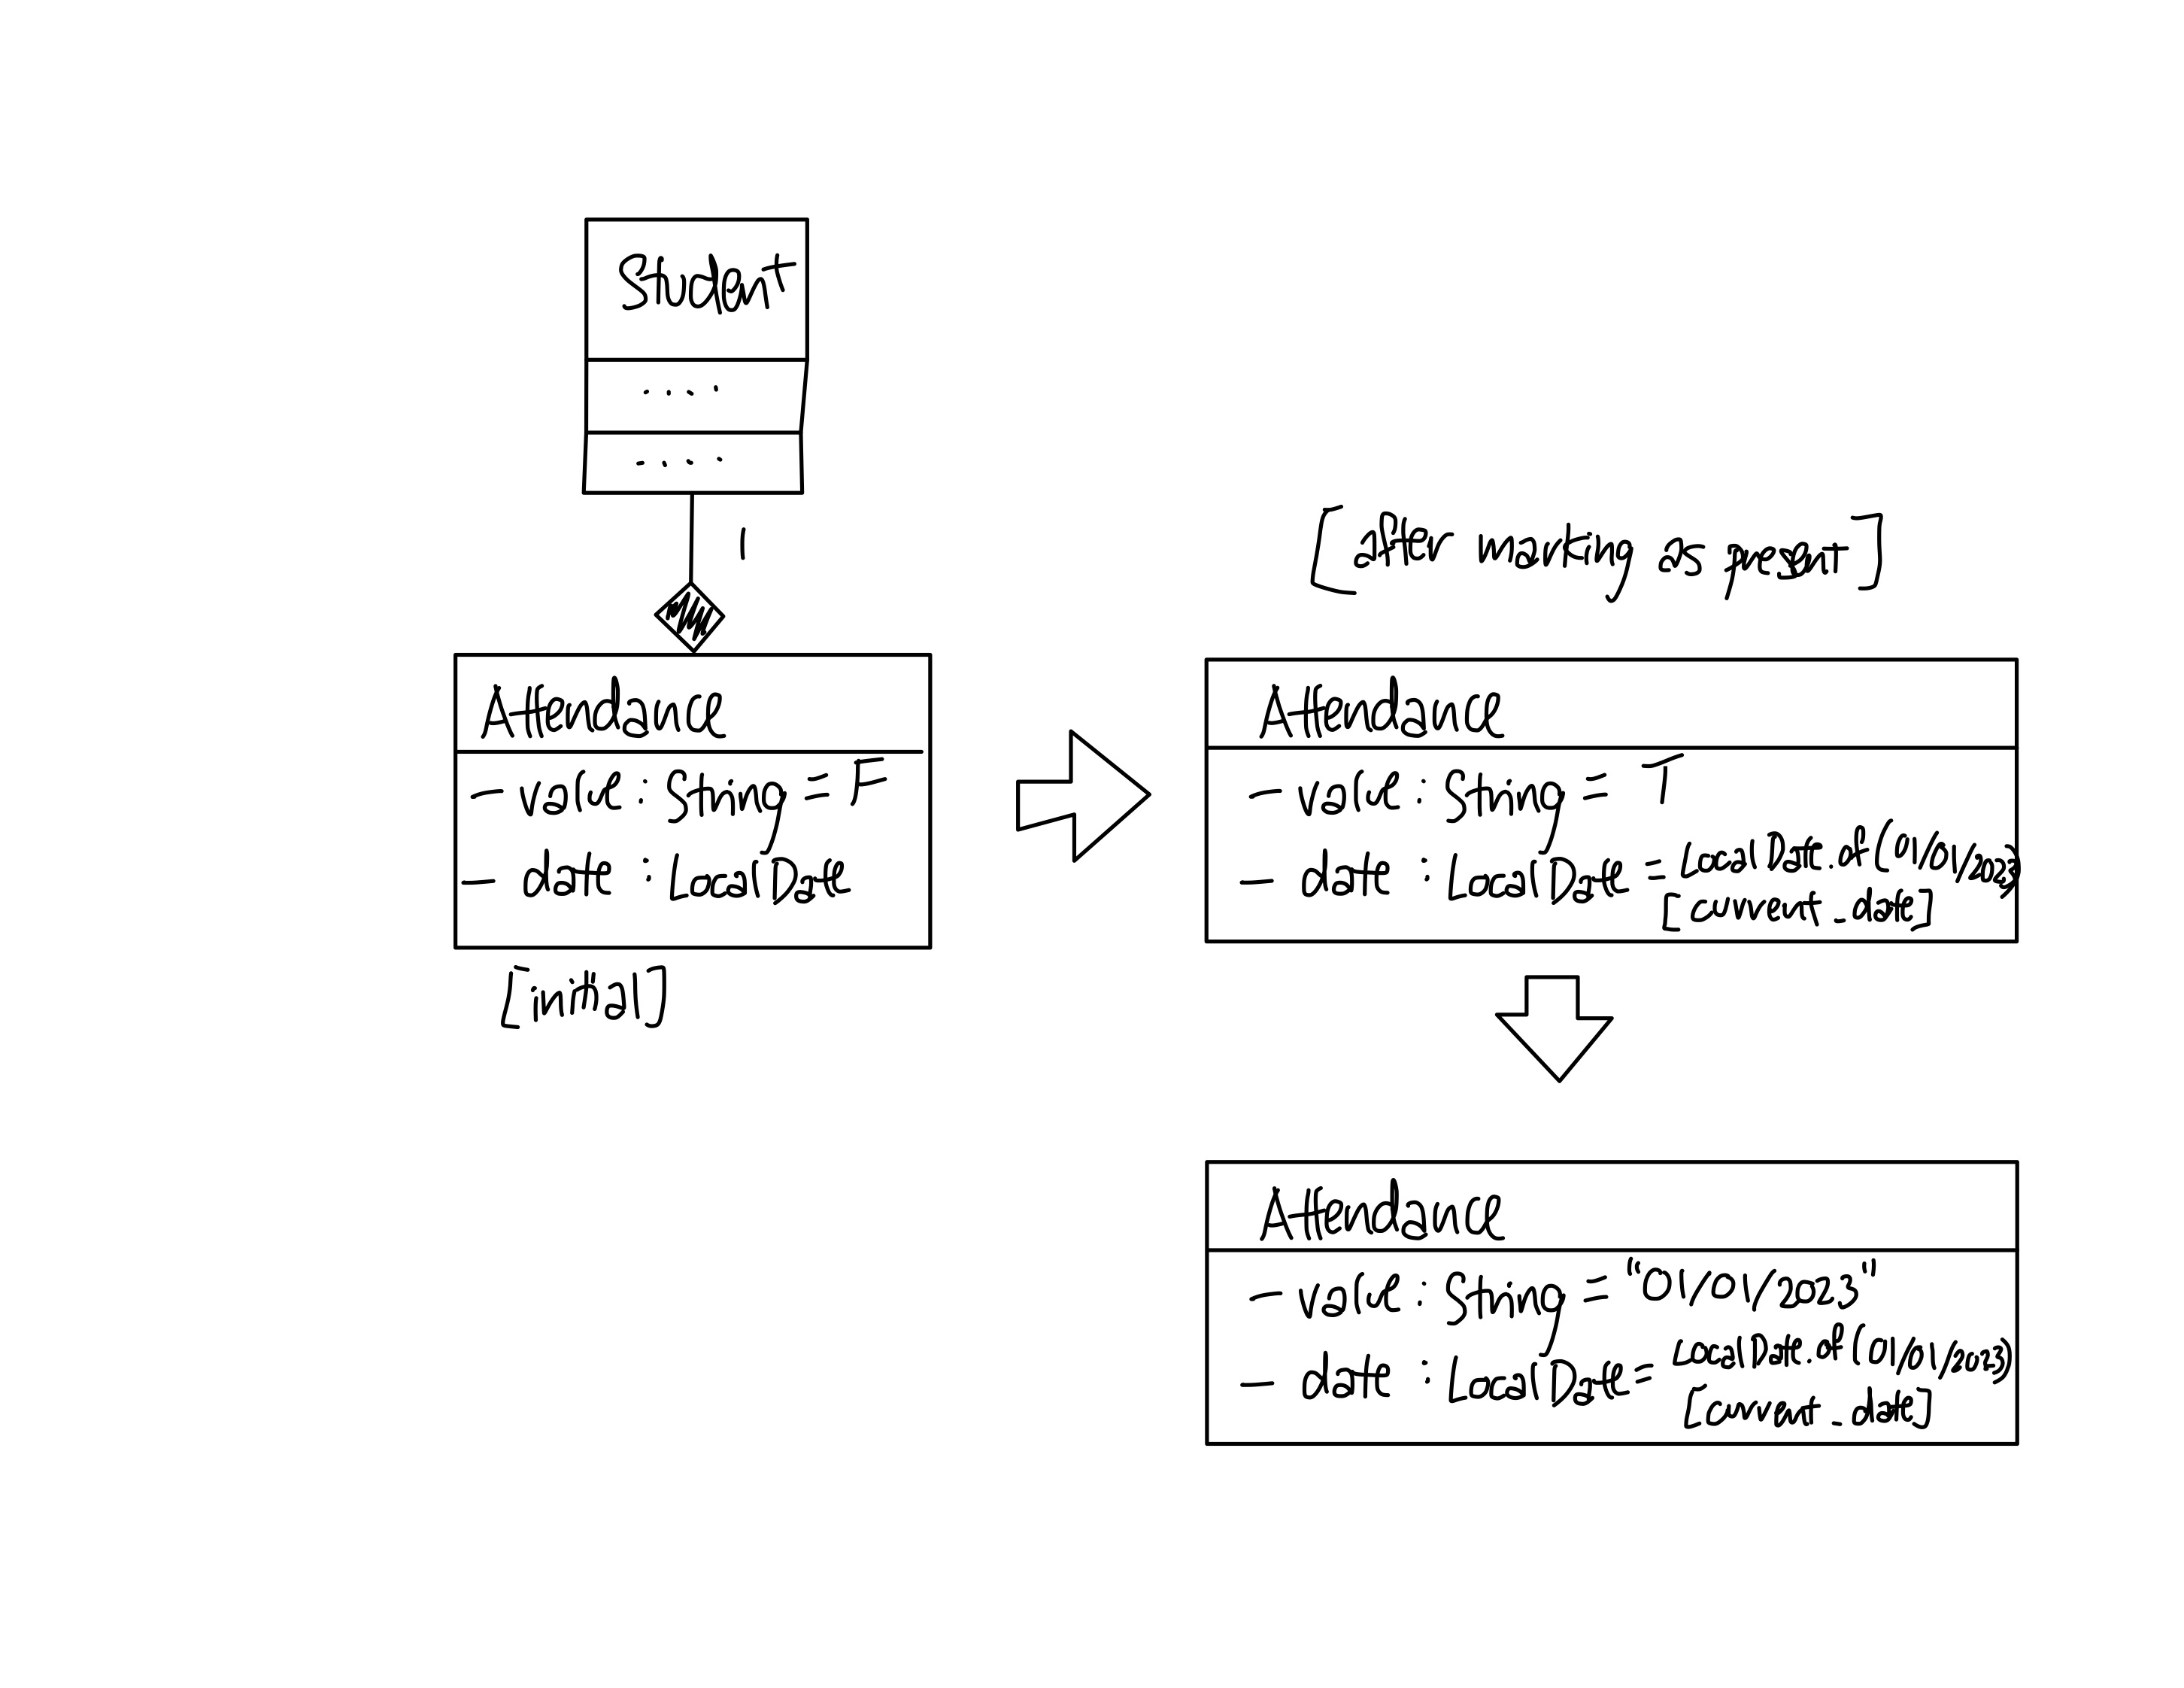 Student
....
....
1
Attendance
- value : String = F
- date : LocalDate
[initial]
[after marking as present]
Attendance
- value : String = T
- date : LocalDate = LocalDate.of(01/01/2023)
[current_date]
Attendance
- value : String = "01/01/2023"
- date : LocalDate = LocalDate.of(01/01/2023)
[current_date]